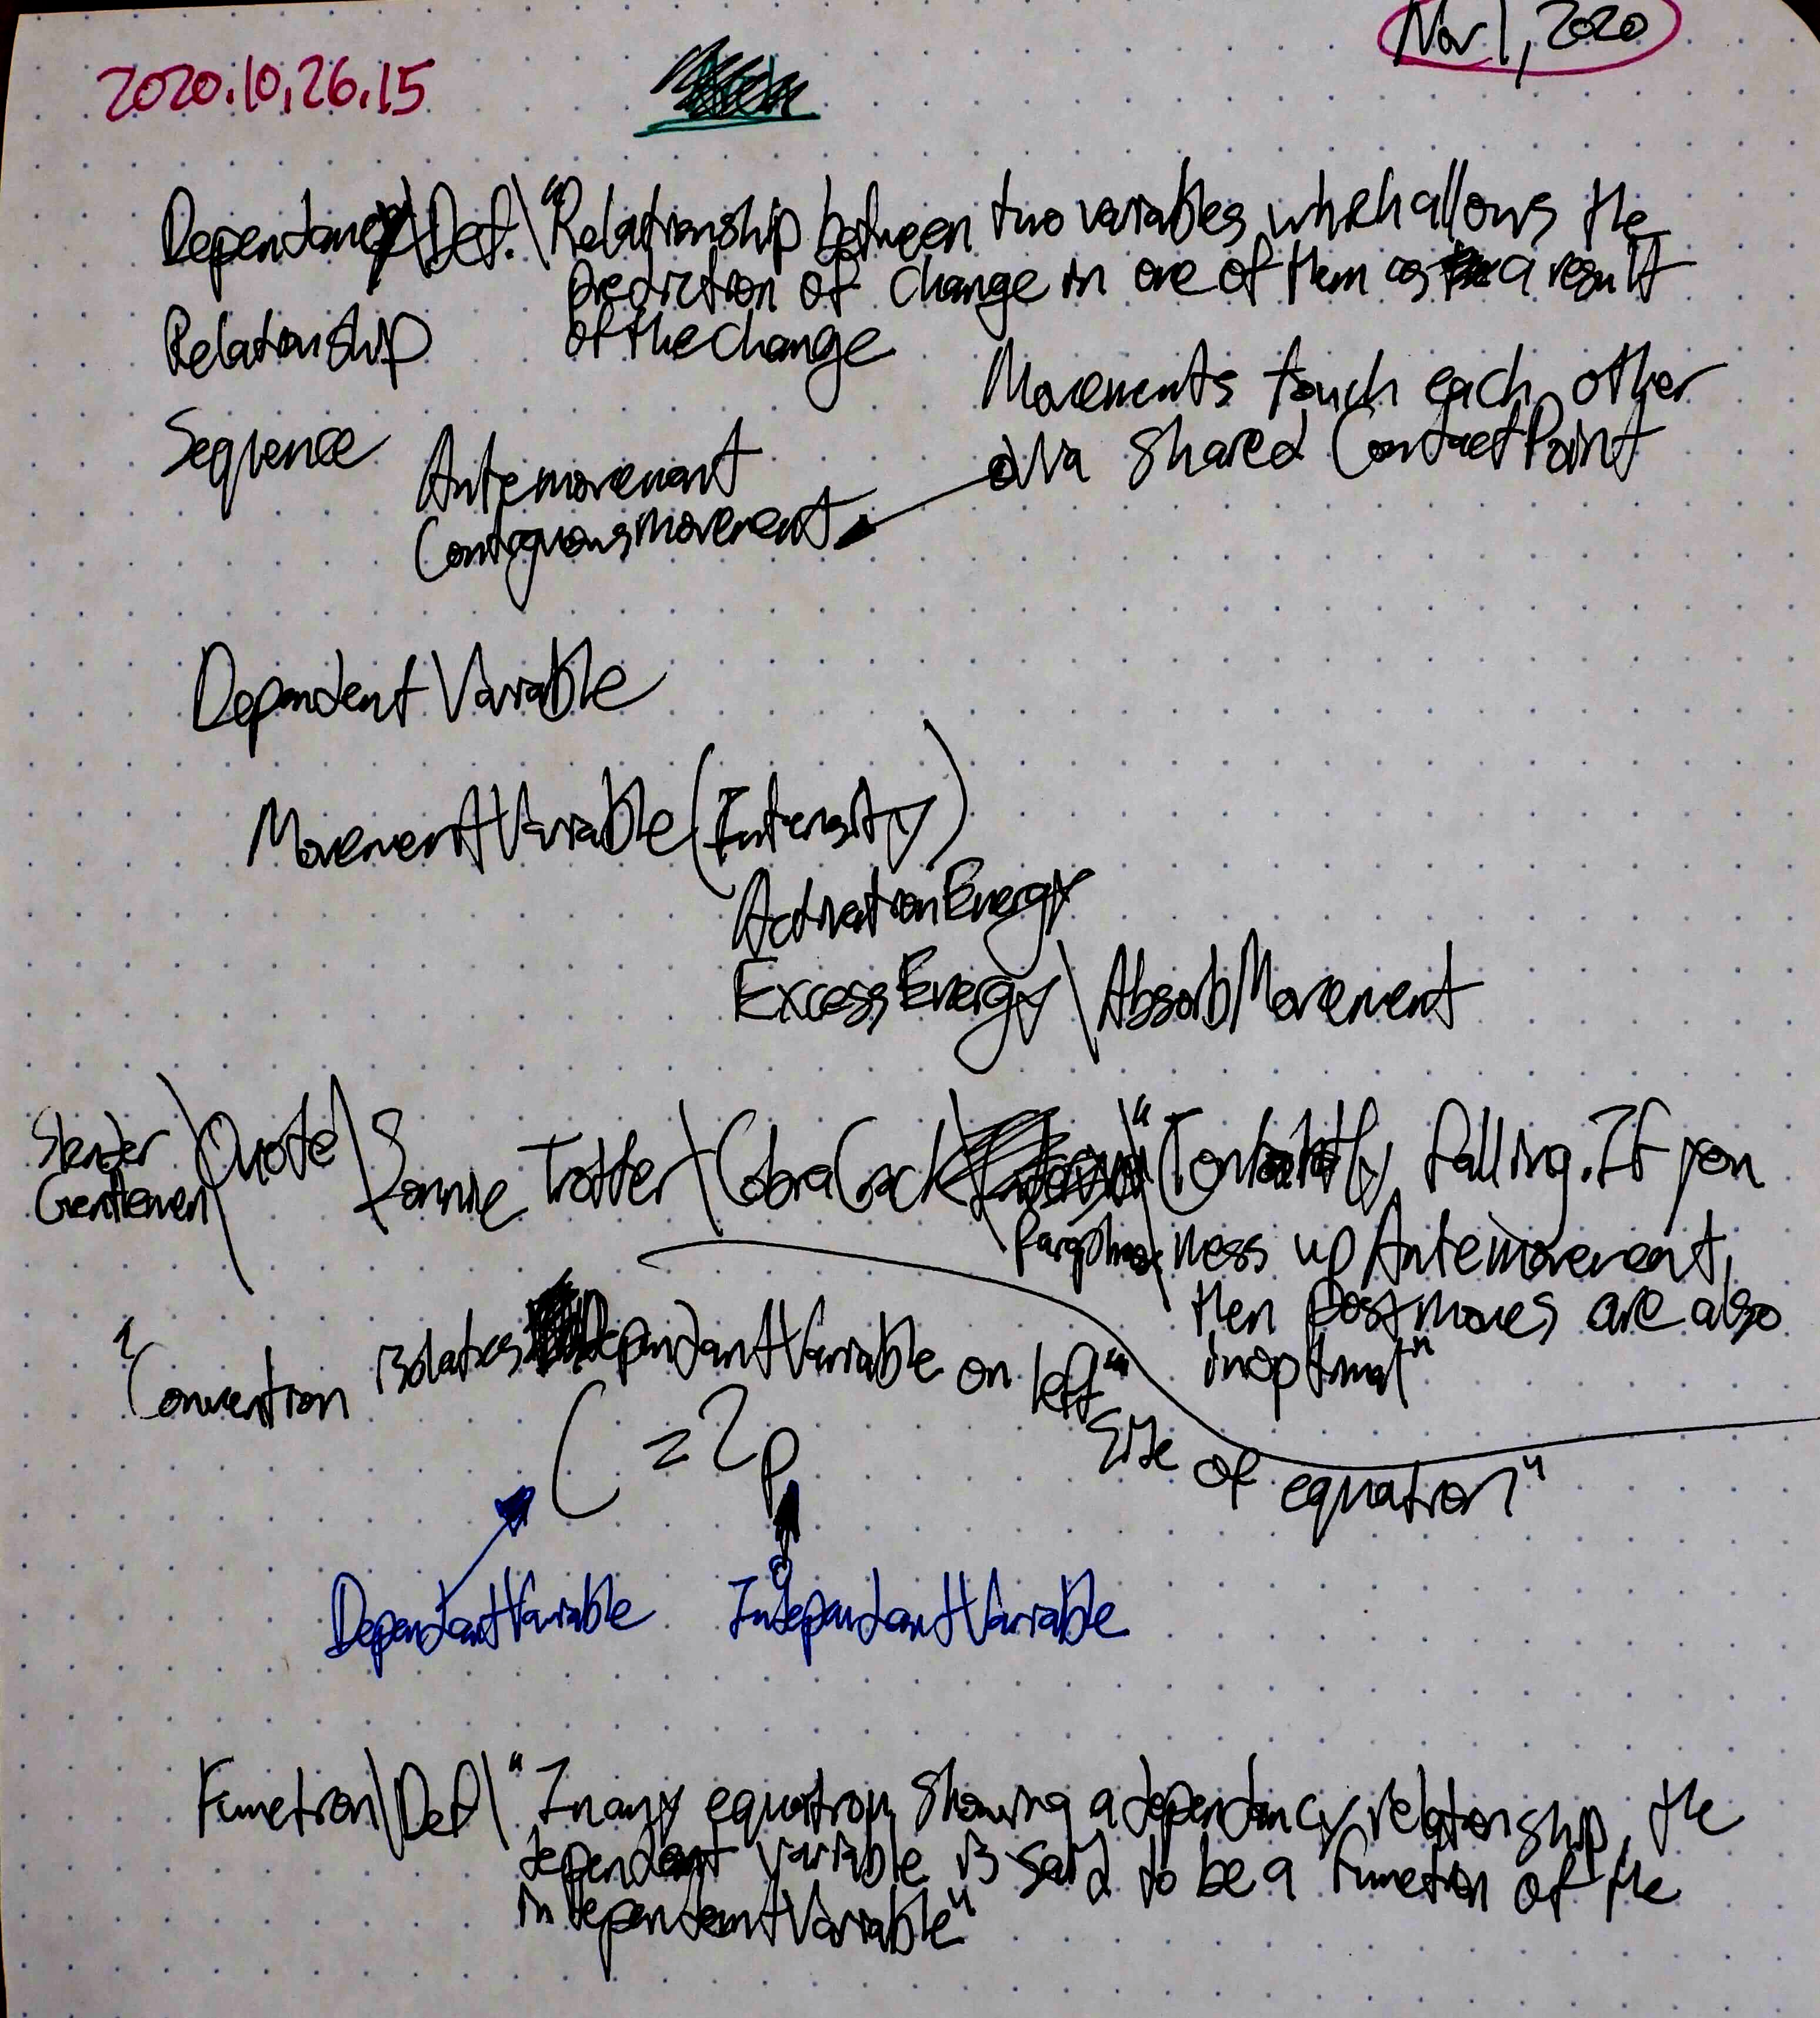 Nov 1, 2020
2020.10.26.15
Dependancy\Def.\"Relationship between two variables which allows the
prediction of change in one of them as a result
of the change
Relationship
Sequence
Movements touch each other
via shared ContactPoint
Antemovement
Contiguousmovement
Dependent Variable
MovementVariable(Intensity)
ActivationEnergy
ExcessEnergy\AbsorbMovement
Slender
Gentlemen\Quote\Sonnie Trotter\CobraCrack\Paraphrase\"Constantly falling. If you
mess up Antemovement,
then postmoves are also
inoptimal"
"Convention isolates DependantVariable on left
side of equation"
C = 2p
DependantVariable IndependantVariable
Function\Def\"In any equation showing a dependency relationship, the
dependent variable is said to be a function of the
independentVariable"